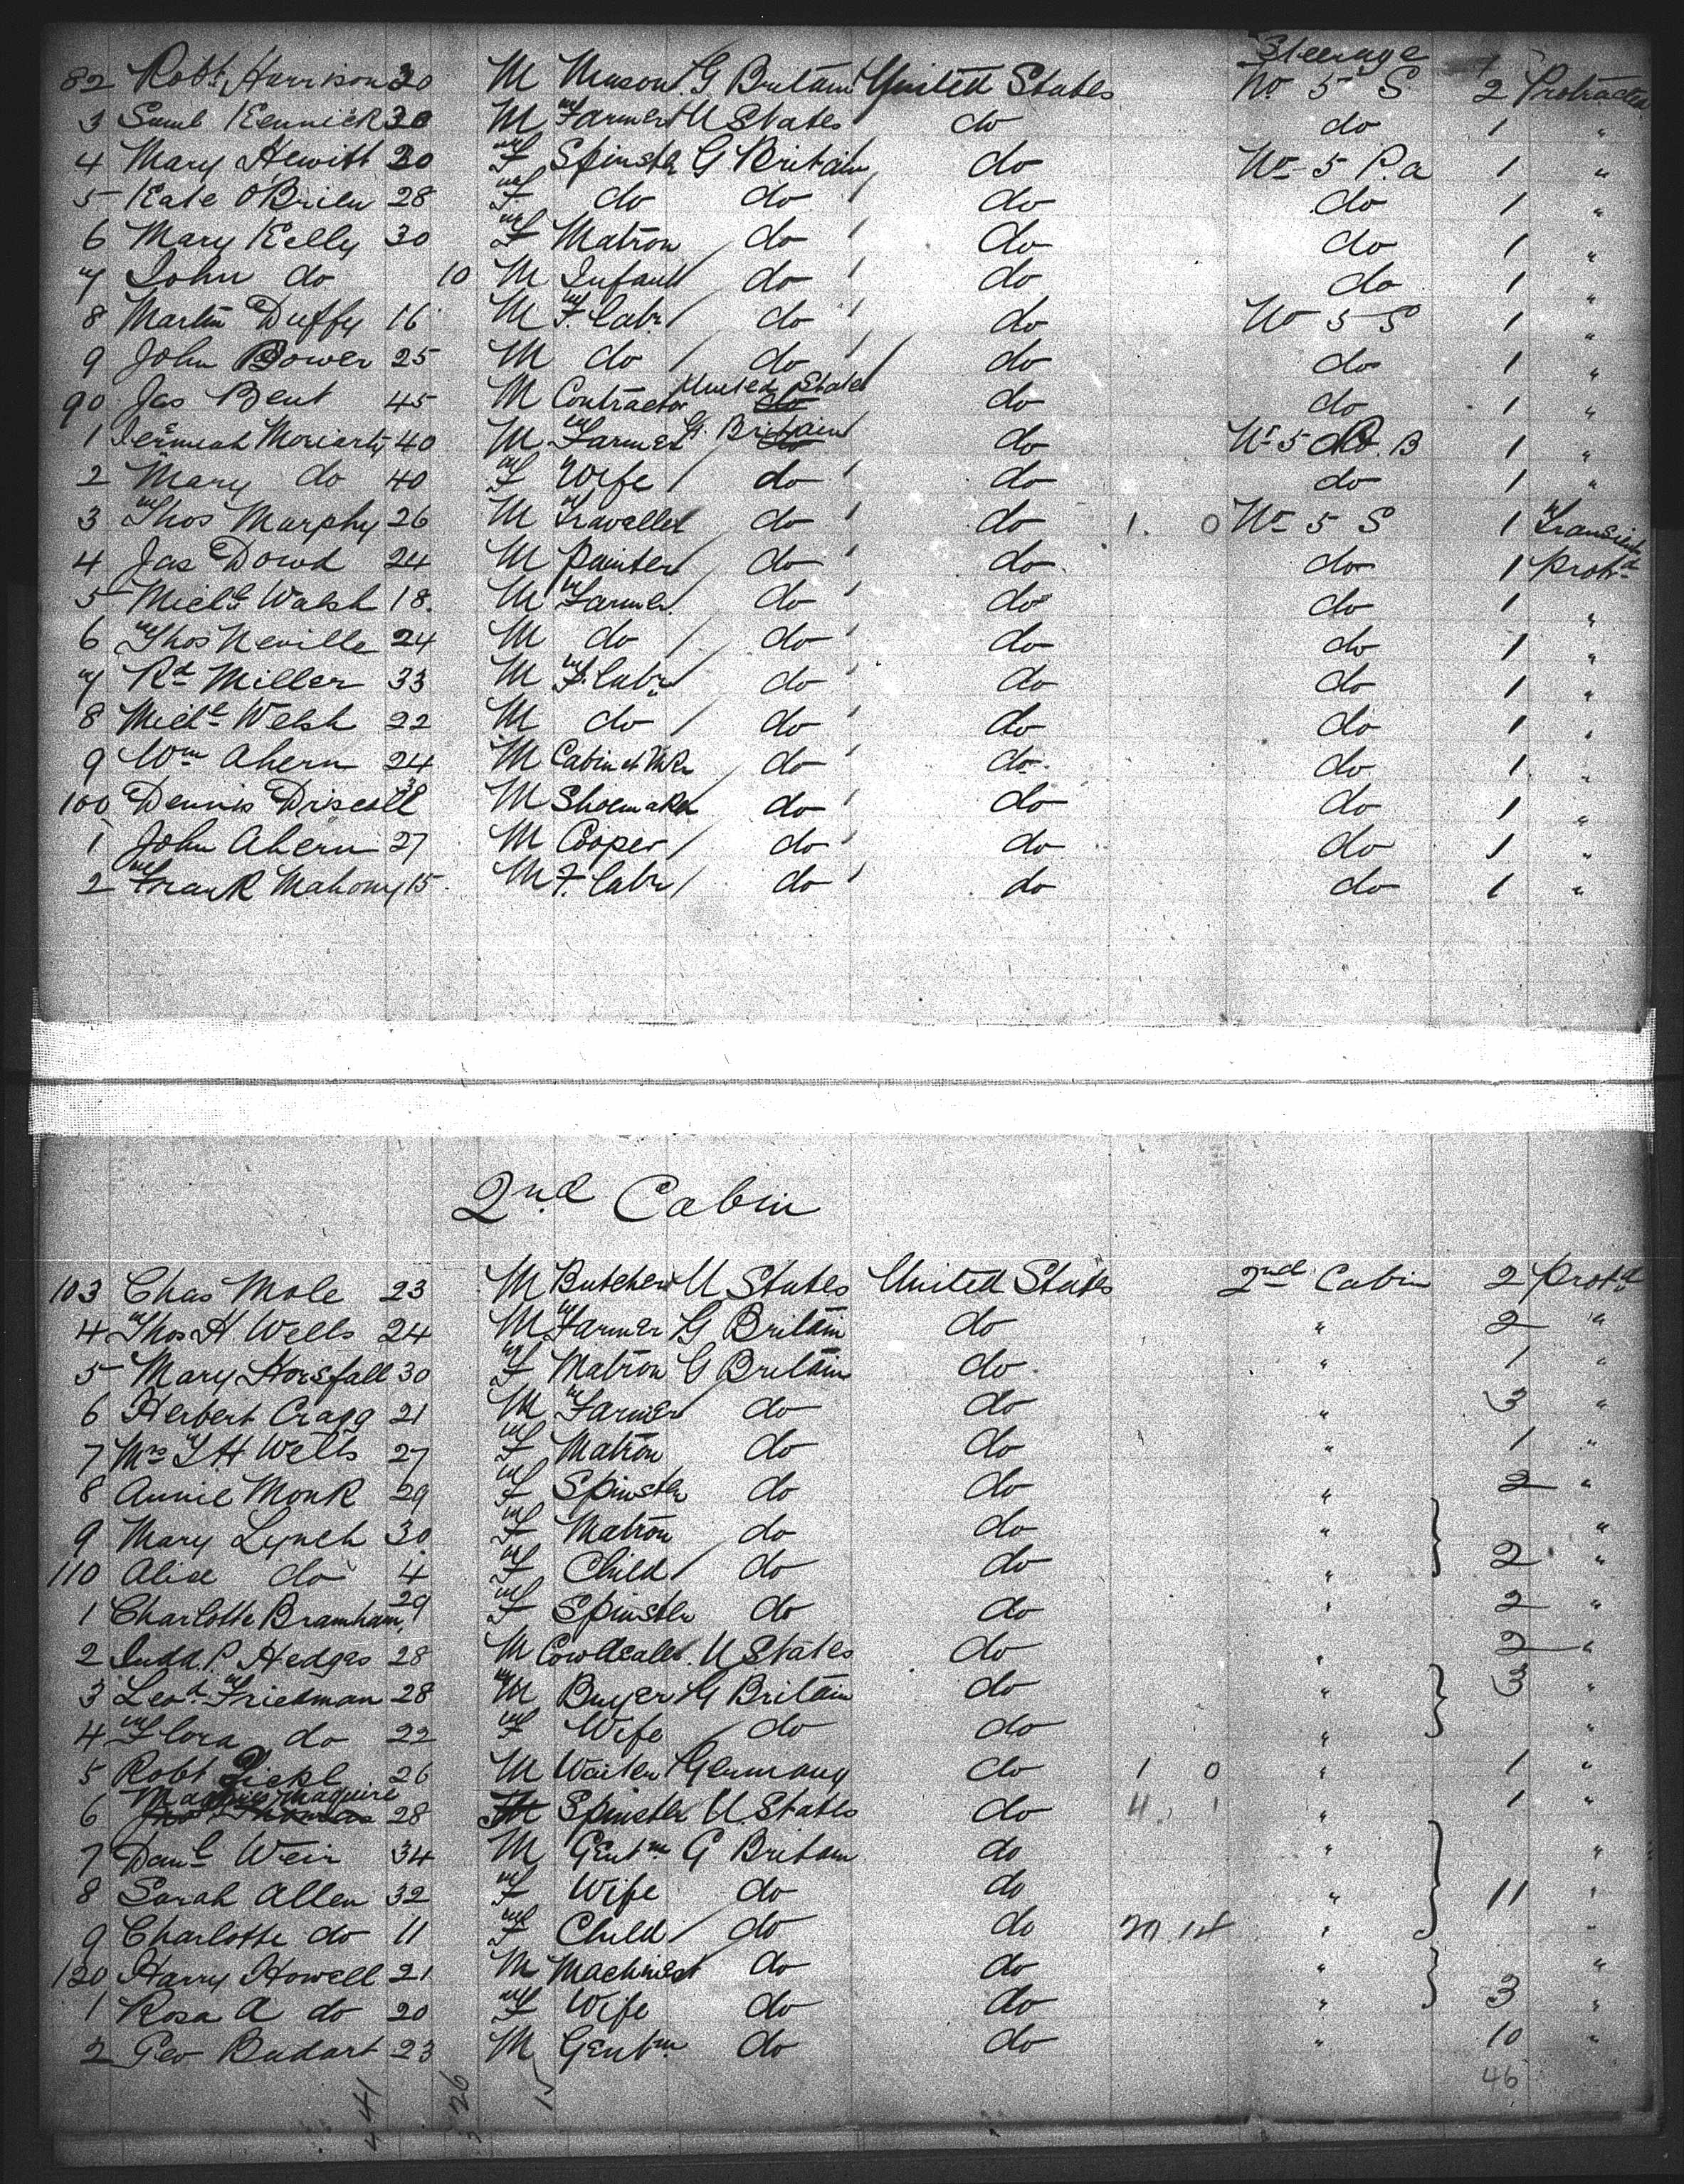 Steerage
82 Robt Harrison 30 M Mason G Britain United States No 5 S 2 Protracted
3 Saml Kennick 30 M Farmer U States do do 1 "
4 Mary Hewitt 20 F Spinster G Britain do No 5 P. a 1 "
5 Kate O'Brien 28 F do do do do 1 "
6 Mary Kelly 30 F Matron do do do 1 "
7 John do 10 M Infant do do do 1 "
8 Martin Duffy 16 M F. Labr do do No 5 S 1 "
9 John Bower 25 M do do do do 1 "
90 Jas Bent 45 M Contractor United States do do 1 "
1 Jeremiah Moriarty 40 M Farmer G. Britain do No 5 B 1 "
2 Mary do 40 F Wife do do do 1 "
3 Thos Murphy 26 M Traveller do do 1. 0 No 5 S 1 Transient
4 Jas Dowd 24 M Painter do do do 1 Protd
5 Michl Walsh 18. M Farmer do do do 1 "
6 Thos Neville 24 M do do do do 1 "
7 Rd Miller 33 M F. Labr do do do 1 "
8 Michl Welsh 22 M do do do do 1 "
9 Wm Ahern 24 M Cabinet Mkr do do do 1 "
100 Dennis Driscoll 30 M Shoemaker do do do 1 "
1 John Ahern 27 M Cooper do do do 1 "
2 Frank Mahony 15 M F. Labr do do do 1 "
2nd Cabin
103 Chas Mole 23 M Butcher U States United States 2nd Cabin 2 Protd
4 Thos H Wells 24 M Farmer G Britain do " 2 "
5 Mary Horsfall 30 F Matron G Britain do " 1 "
6 Herbert Cragg 21 M Farmer do do " 3 "
7 Mrs T H Wells 27 F Matron do do " 1 "
8 Annie Monk 29 F Spinster do do " 2 "
9 Mary Lynch 30 F Matron do do " "
110 Alice do 4 F Child do do " 2 "
1 Charlotte Bramham 29 F Spinster do do " 2 "
2 Judd. P. Hedges 28 M Cow dealer U States do " 2 "
3 Leod Friedman 28 M Buyer G Britain do " 3 "
4 Flora do 22 F Wife do do " "
5 Robt 26 M Waiter Germany do 1 0 " 1 "
6 Maguire 28 Spinster U. States do 4. 1 " 1 "
7 Danl Weir 34 M Gentm G Britain do " "
8 Sarah Allen 32 F Wife do do " 11 "
9 Charlotte do 11 F Child do do " "
120 Harry Howell 21 M Machinist do do " "
1 Rosa A do 20 F Wife do do " 3 "
2 Geo Budart 23 M Gentm do do " 10 "
46
41 26 15